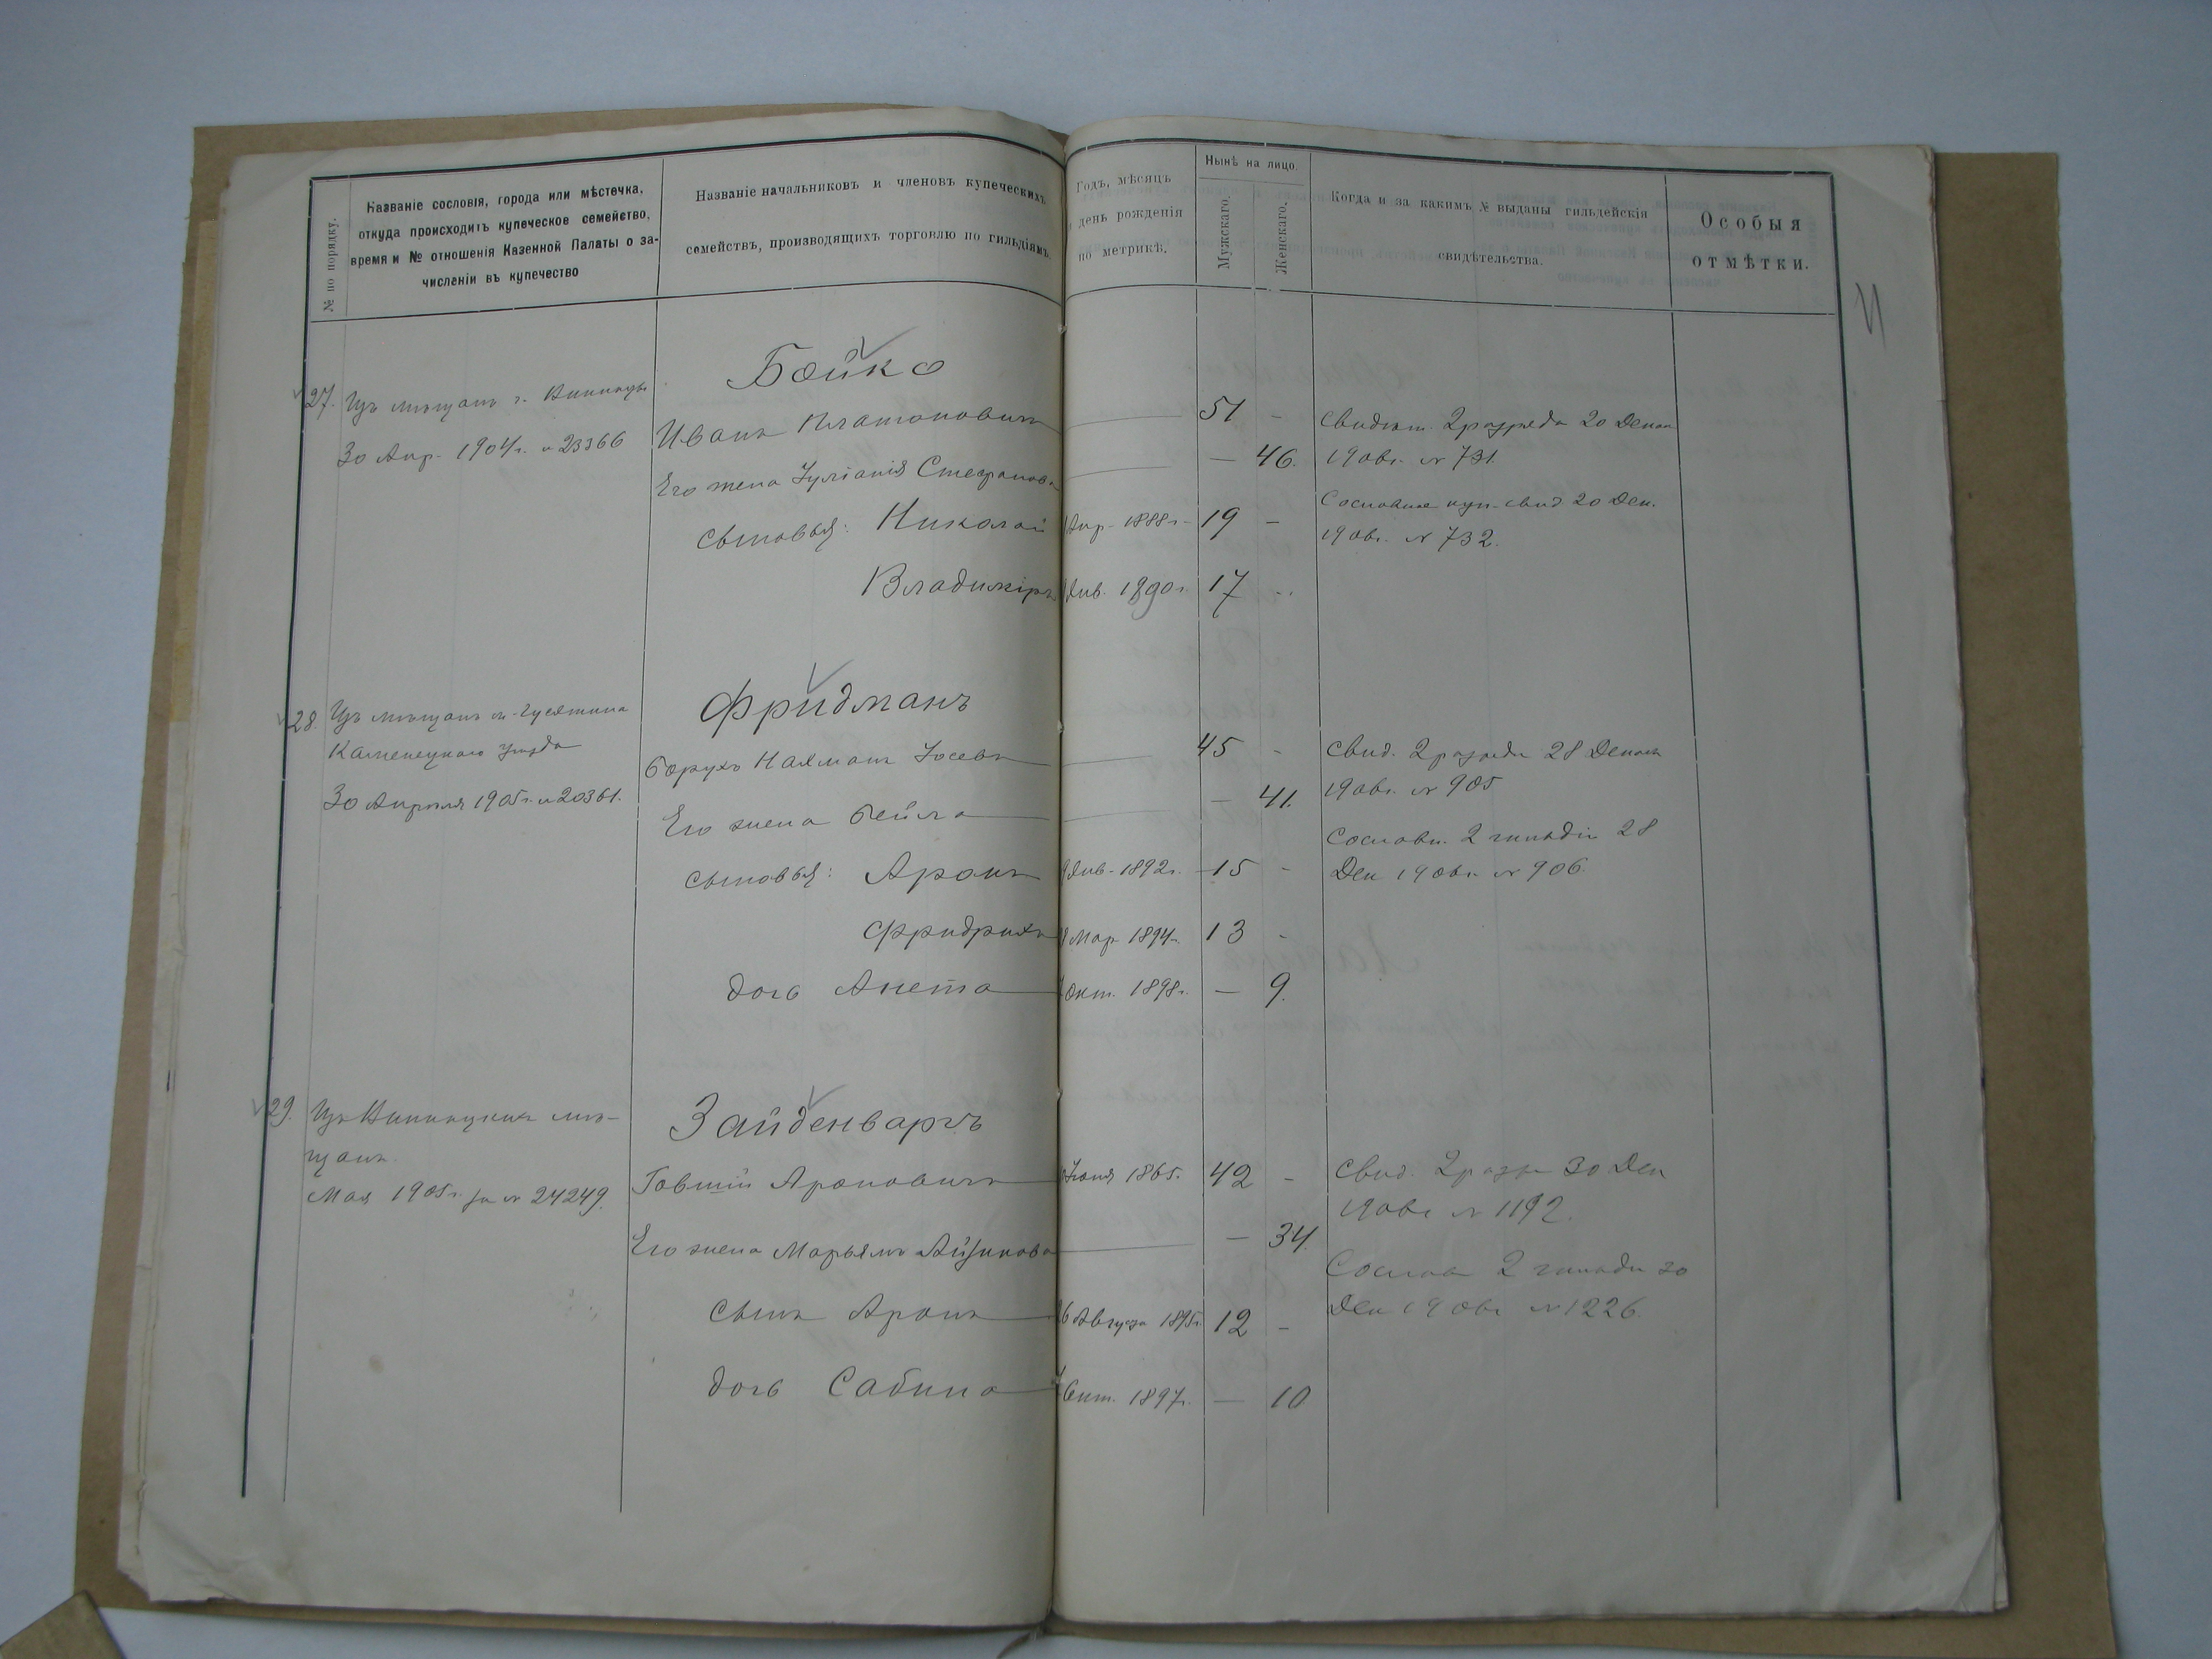 № по порядку.
Названіе сословія, города или мѣстечка,
откуда происходитъ купеческое семейство,
время и № отношенія Казенной Палаты о за-
численіи въ купечество
Названіе начальниковъ и членовъ купеческихъ
семействъ, производящихъ торговлю по гильдіямъ.
Годъ, мѣсяцъ
и день рожденія
по метрикѣ.
Нынѣ на лицо.
Мужскаго.
Женскаго.
Когда и за какимъ № выданы гильдейскія
свидѣтельства.
Особыя
отмѣтки.
Бойко
27. Изъ мѣщанъ г. Винницы
30 Апр. 1904 г. № 23366
Иванъ Платоновичъ — 51 -
Его жена Іуліанія Стефанова — — 46.
сыновья: Николай Апр. 1888 г. 19 -
Владиміръ Янв. 1890 г. 17 -
Свидѣт. 2 разряда 20 Декаб
1906 г. № 731.
Сословное куп. свид 20 Дек.
1906 г. № 732.
Фридманъ
28. Изъ мѣщанъ м. Гусятина
Каменецкаго уѣзда
30 Апрѣля 1905 г. № 20361.
Борухъ Нахманъ Іосевъ — 45 -
Его жена Бейла — — 41.
сыновья: Аронъ Янв. 1892 г. 15 -
Фридрихъ Мар. 1894 г. 13 -
дочь Анета Окт. 1898 г. — 9.
Свид. 2 разряда 28 Декаб
1906 г. № 905
Сословн. 2 гильдіи 28
Дек 1906 г. № 906.
Зайденваргъ
29. Изъ Винницкихъ мѣ-
щанъ.
Мая 1905 г. за № 24249.
Говшій Ароновичъ Іюня 1865. 42 -
Его жена Марьямъ Айзикова — — 34.
сынъ Аронъ 6 Августа 1895 г. 12 -
дочь Сабина Окт. 1897 г. — 10
Свид. 2 разр 30 Дек
1906 г. № 1192.
Сослов 2 гильди 30
Дек 1906 г. № 1226.